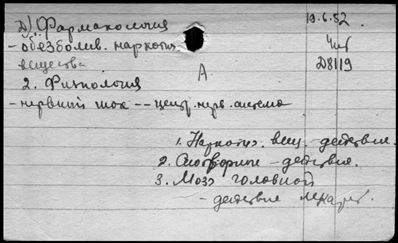 Д) Фармакология
19.6.52.
- обезболив. наркотич.
вещества
Д8119
А
2. Физиология
- нервный шок -- центр. нерв. система
1. Наркотич. вещ. действие.
2. Снотворные - действие.
3. Мозг головной
- действие